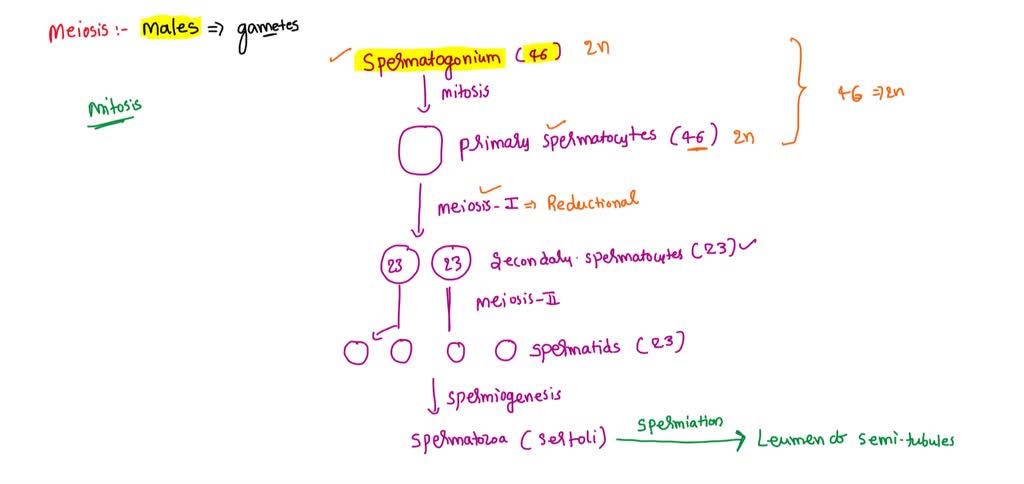 Meiosis :- Males => gametes
Spermatogonium (46) 2n
mitosis
Mitosis
46 => 2n
Primary spermatocytes (46) 2n
meiosis-I => Reductional
23 23 Secondary spermatocytes (23)
meiosis-II
spermatids (23)
spermiogenesis
spermatozoa (sertoli) spermiation Leumen of semi-tubules